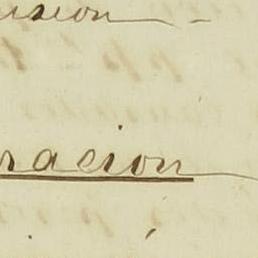 usion
racion